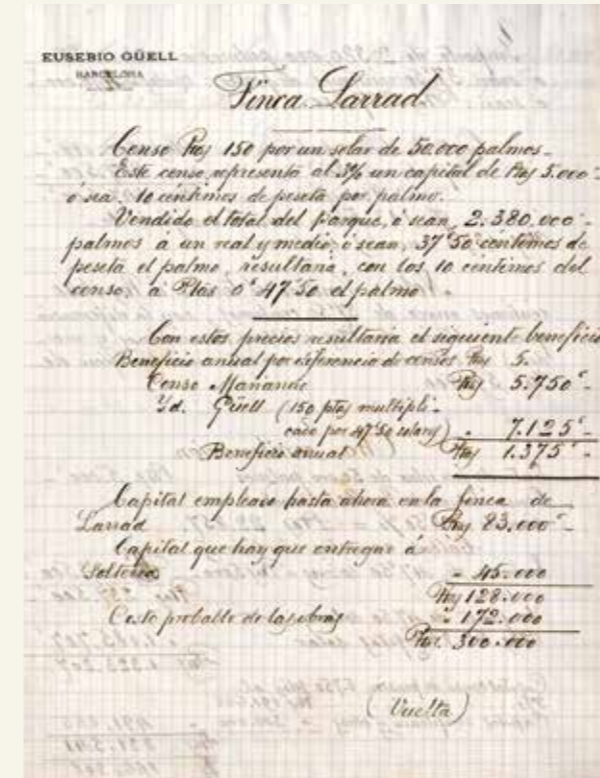 EUSEBIO GÜELL
BARCELONA
Finca Larrad
Censo Ptas 150 por un solar de 50.000 palmos_
Este censo representa al 3% un capital de Ptas 5.000'_
ó sea 10 céntimos de peseta por palmo.
Vendido el total del parque, ó sean, 2.380.000'_
palmos a un real y medio, ó sean, 37'50 centimos de
peseta el palmo, resultaria, con los 10 centimos del
censo, a Ptas 0'47'50 el palmo_
Con estos precios resultaria el siguiente beneficio
Beneficio anual por diferencia de censos Ptas 5.
Censo Ptas 5.750'_
Id. Güell (150 ptas multipli-
cado por 47'50 solars) " 7.125'_
Beneficio anual Ptas 1.375'_
Capital empleado hasta ahora en la finca de
Larrad Ptas 83.000'_
Capital que hay que entregar á
" 45.000
Ptas 128.000
Costo probable de las obras " 172.000
Ptas 300.000
(Vuelta)